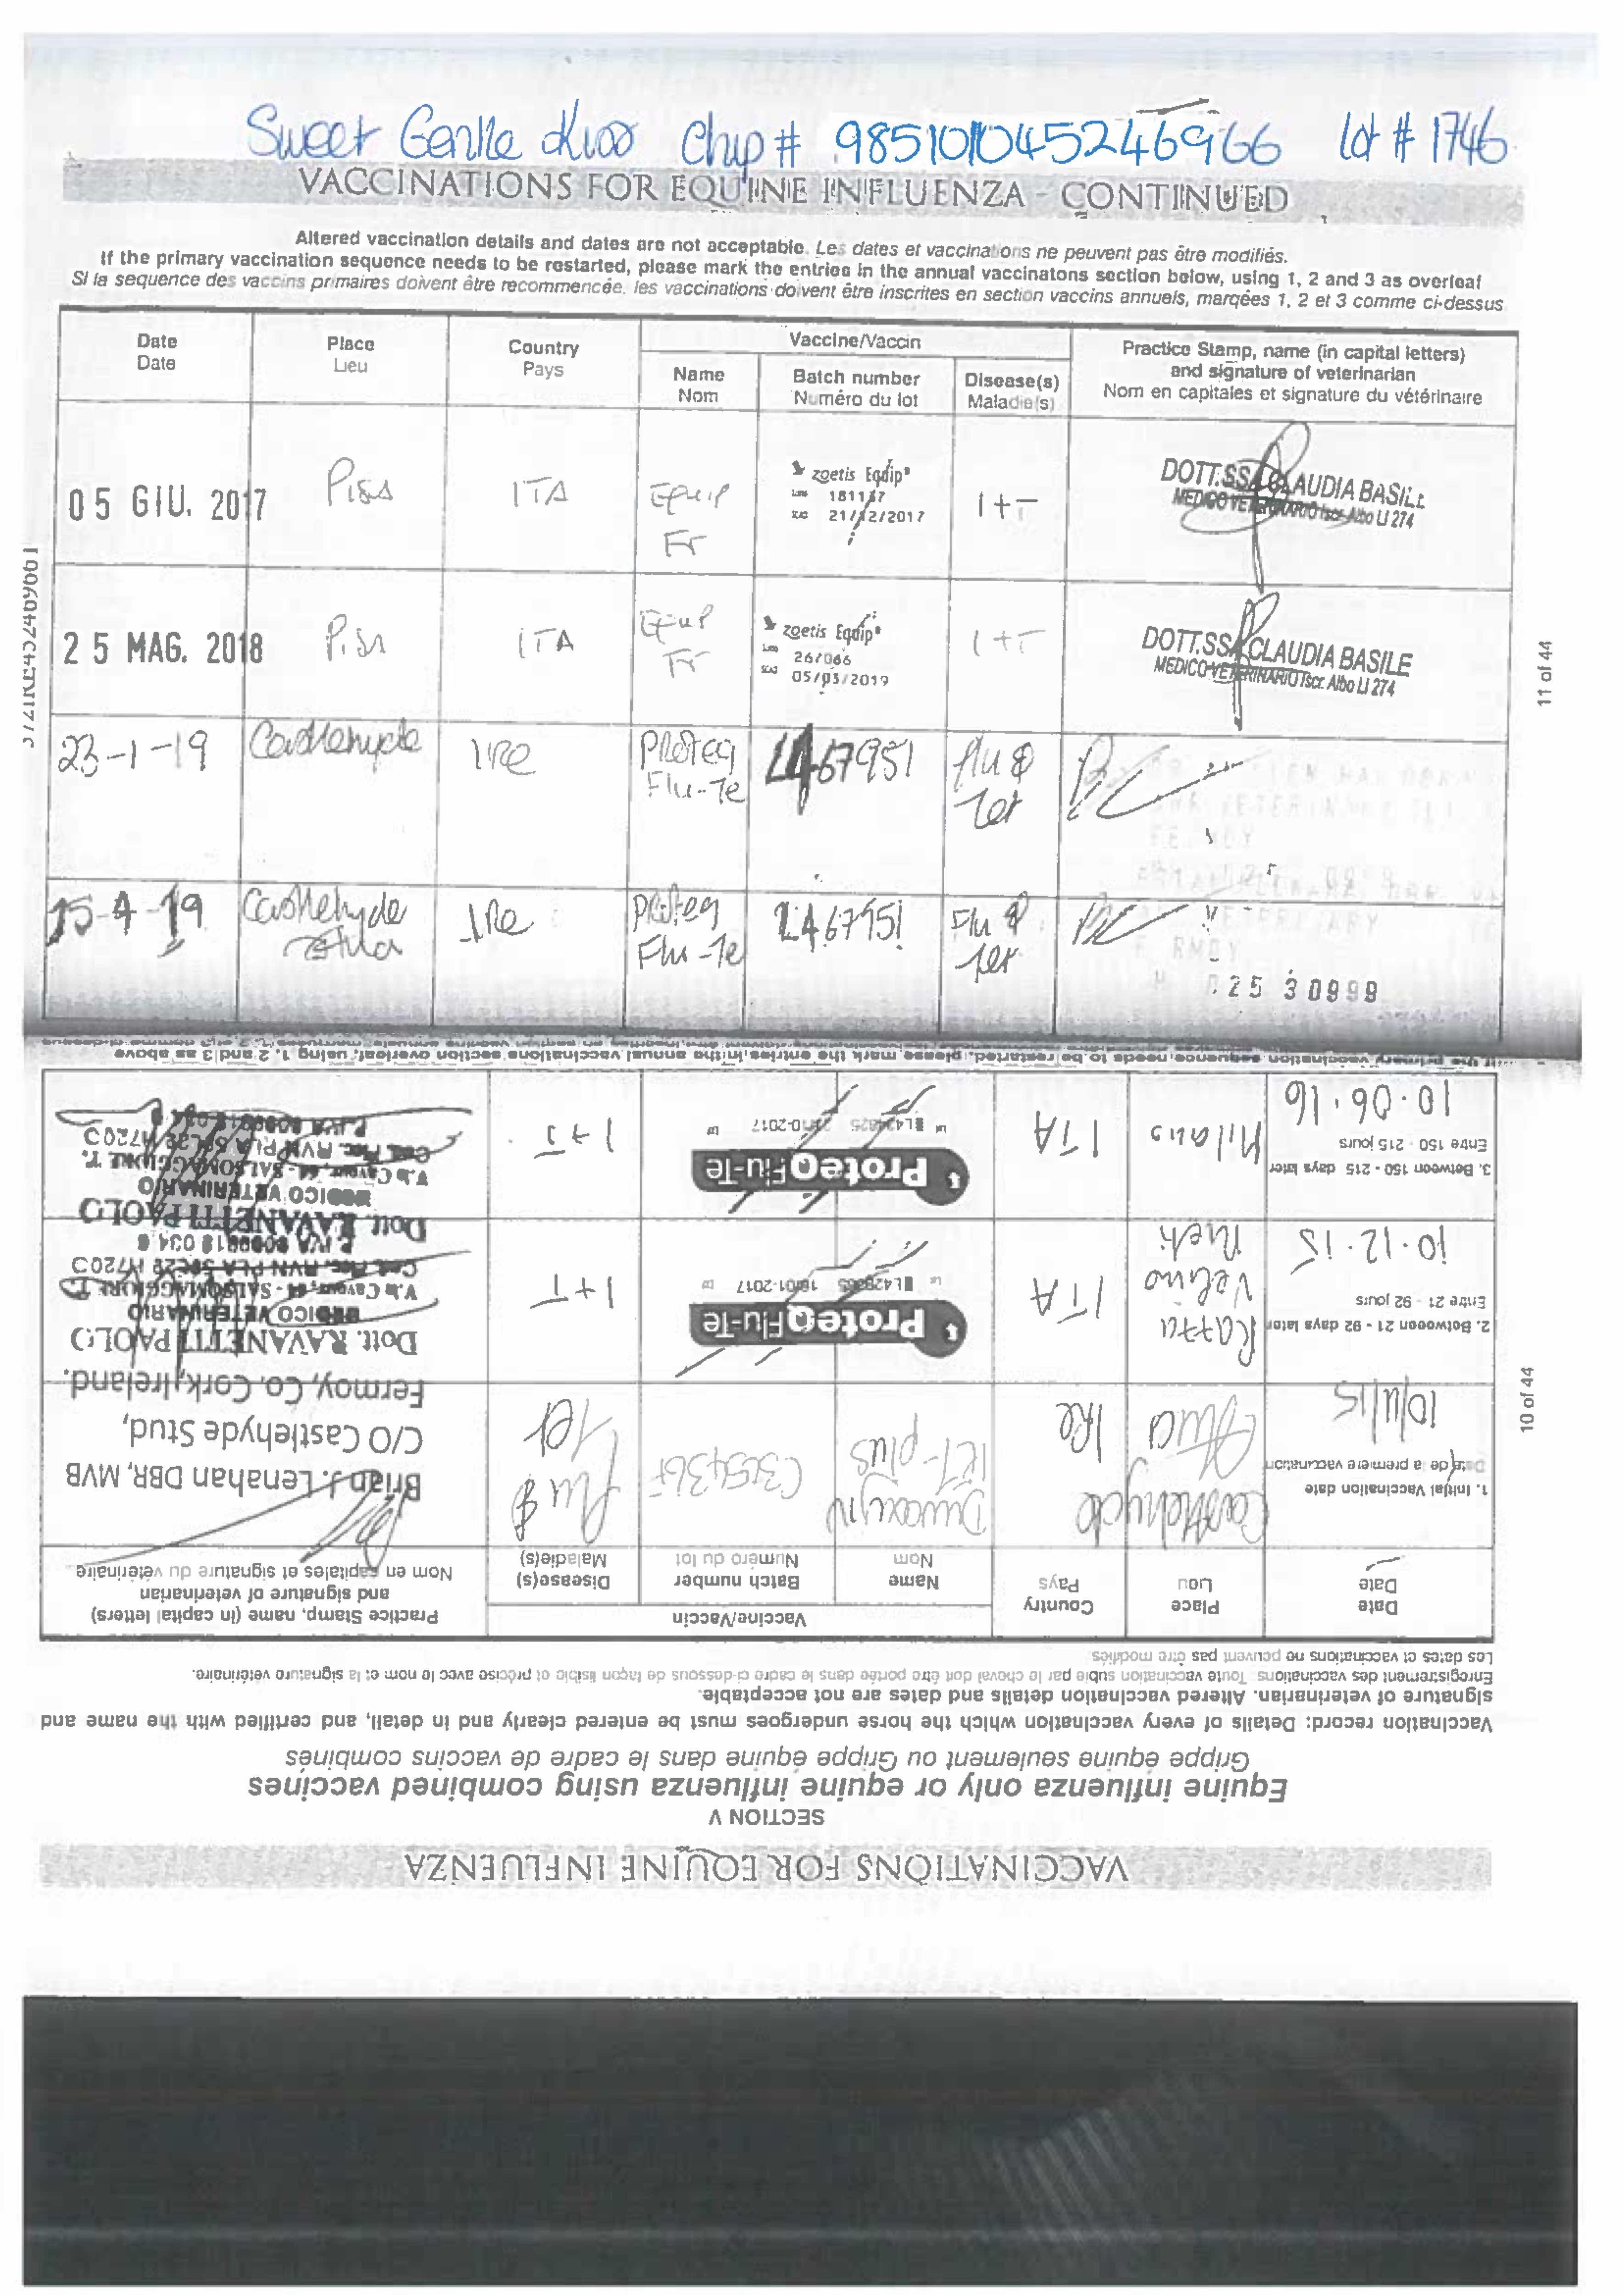 Sweet Gentle Kiss Chip # 985101045246966 Lot # 1746
VACCINATIONS FOR EQUINE INFLUENZA - CONTINUED
Altered vaccination details and dates are not acceptable. Les dates et vaccinations ne peuvent pas être modifiés.
If the primary vaccination sequence needs to be restarted, please mark the entries in the annual vaccinatons section below, using 1, 2 and 3 as overleaf
Si la sequence des vaccins primaires doivent être recommencée, les vaccinations doivent être inscrites en section vaccins annuels, marqées 1, 2 et 3 comme ci-dessus
Date Place Country Vaccine/Vaccin Practice Stamp, name (in capital letters)
Date Lieu Pays and signature of veterinarian
Name Batch number Disease(s) Nom en capitales et signature du vétérinaire
Nom Numéro du lot Maladie(s)
05 GIU. 2017 Pisa ITA Equip FT zoetis Equip 181137 21/12/2017 I+T DOTT.SSA CLAUDIA BASILE
MEDICO VETERINARIO Iscr. Albo LI 274
25 MAG. 2018 Pisa ITA Equip FT zoetis Equip 267066 05/03/2019 I+T DOTT.SSA CLAUDIA BASILE
MEDICO VETERINARIO Iscr. Albo LI 274
23-1-19 Castlehyde IRE Proteq Flu-Te L467951 Flu & Tet
15-4-19 Castlehyde Stud IRE Proteq Flu-Te L467951 Flu & Tet
025 30999
11 of 44
VACCINATIONS FOR EQUINE INFLUENZA
SECTION V
Equine influenza only or equine influenza using combined vaccines
Grippe équine seulement ou Grippe équine dans le cadre de vaccins combinés
Vaccination record: Details of every vaccination which the horse undergoes must be entered clearly and in detail, and certified with the name and
signature of veterinarian. Altered vaccination details and dates are not acceptable.
Enregistrement des vaccinations: Toute vaccination subie par le cheval doit être portée dans le cadre ci-dessous de façon lisible et précise avec le nom et la signature vétérinaire.
Les dates et vaccinations ne peuvent pas être modifiés.
Date Place Country Vaccine/Vaccin Practice Stamp, name (in capital letters)
Date Lieu Pays and signature of veterinarian
Name Batch number Disease(s) Nom en capitales et signature du vétérinaire
Nom Numéro du lot Maladie(s)
1. Initial Vaccination date
Date de la premiere vaccination
10/11/15 Castlehyde Stud IRE Duvaxyn IET-plus Flu & Tet
Brian J. Lenahan DBR, MVB
C/O Castlehyde Stud,
Fermoy, Co. Cork, Ireland.
2. Between 21 - 92 days later
Entre 21 - 92 jours
10.12.15 Razza Velino Rieti ITA ProteqFlu-Te 16-01-2017 I+T
Dott. RAVANETTI PAOLO
MEDICO VETERINARIO
V.le Cavour, - SALSOMAGGIORE T.
3. Between 150 - 215 days later
Entre 150 - 215 jours
10.06.16 Milano ITA ProteqFlu-Te I+T
Dott. RAVANETTI PAOLO
MEDICO VETERINARIO
V.le Cavour, - SALSOMAGGIORE T.
If the primary vaccination sequence needs to be restarted, please mark the entries in the annual vaccinations section overleaf, using 1, 2 and 3 as above
10 of 44